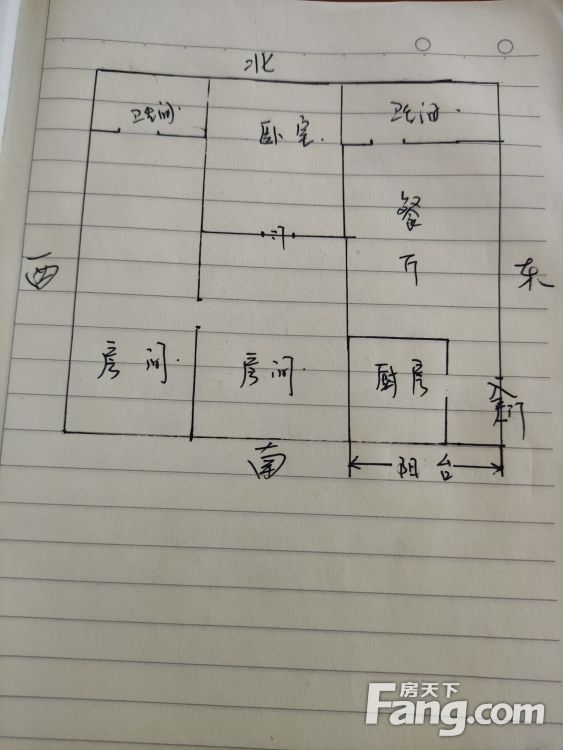 北
卫生间
卧室
卫生间
餐厅
门
西
东
房间
房间
厨房
入户门
南
阳台
房天下
Fang.com